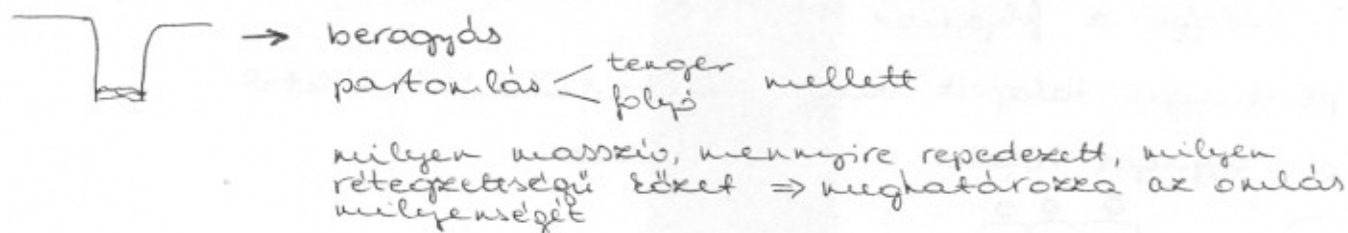 → beragyás
partomlás < tenger folyó mellett
milyen masszív, mennyire repedezett, milyen
rétegzettségű kőzet ⇒ meghatározza az omlás
milyenségét